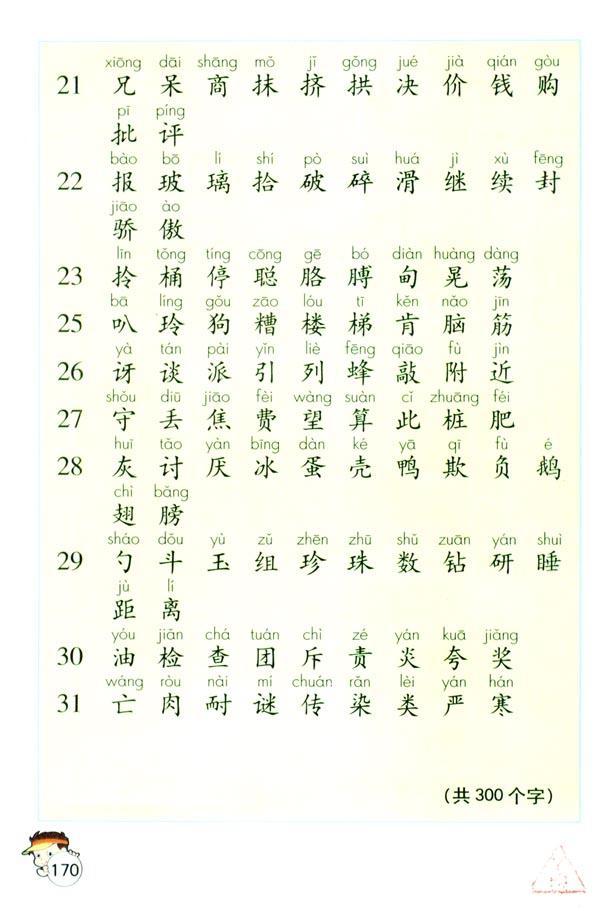 xiōng dāi shāng mǒ jǐ gǒng jué jià qián gòu
21 兄 呆 商 抹 挤 拱 决 价 钱 购
pī píng
批 评
bào bō lí shí pò suì huá jì xù fēng
22 报 玻 璃 拾 破 碎 滑 继 续 封
jiāo ào
骄 傲
līn tǒng tíng cōng gē bó diàn huàng dàng
23 拎 桶 停 聪 胳 膊 甸 晃 荡
bā líng gǒu zāo lóu tī kěn nǎo jīn
25 叭 玲 狗 糟 楼 梯 肯 脑 筋
yà tán pài yǐn liè fēng qiāo fù jìn
26 讶 谈 派 引 列 蜂 敲 附 近
shǒu diū jiāo fèi wàng suàn cǐ zhuāng féi
27 守 丢 焦 费 望 算 此 桩 肥
huī tǎo yàn bīng dàn ké yā qī fù é
28 灰 讨 厌 冰 蛋 壳 鸭 欺 负 鹅
chì bǎng
翅 膀
sháo dǒu yù zǔ zhēn zhū shǔ zuān yán shuì
29 勺 斗 玉 组 珍 珠 数 钻 研 睡
jù lí
距 离
yóu jiǎn chá tuán chì zé yán kuā jiǎng
30 油 检 查 团 斥 责 炎 夸 奖
wáng ròu nài mí chuán rǎn lèi yán hán
31 亡 肉 耐 谜 传 染 类 严 寒
(共 300 个字)
170